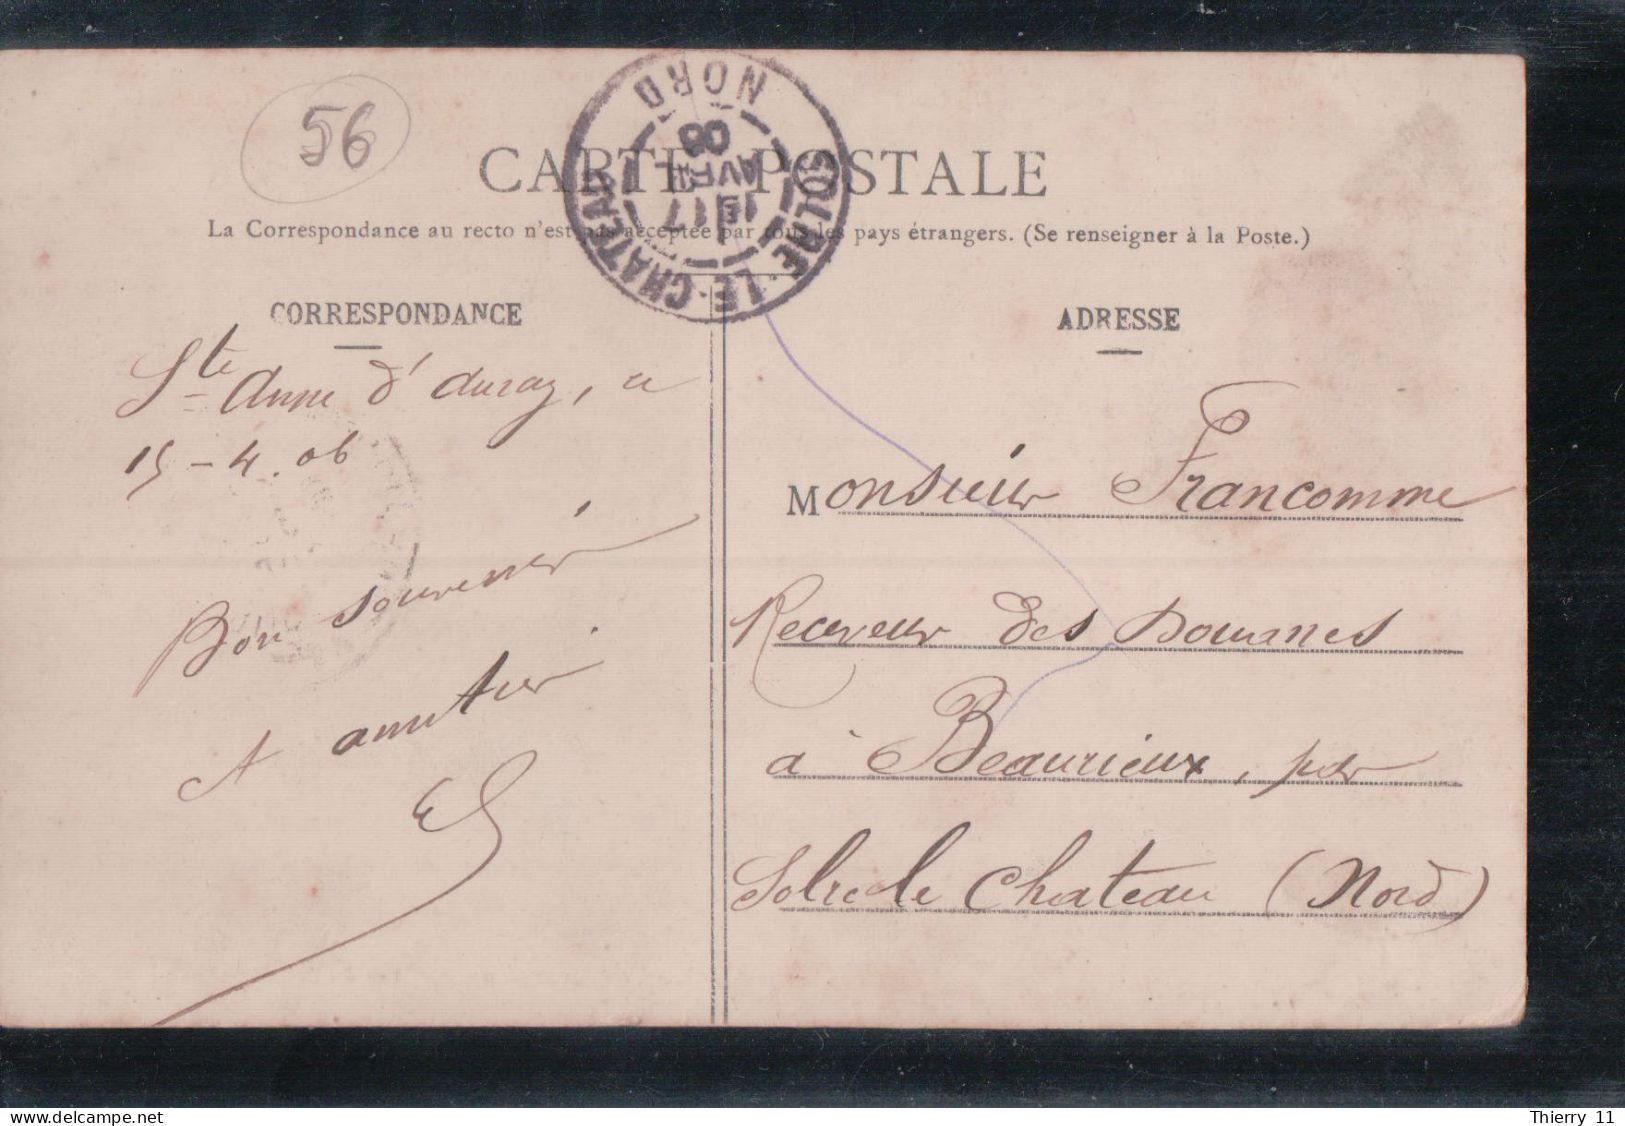 56
CARTE POSTALE
La Correspondance au recto n'est pas acceptée par tous les pays étrangers. (Se renseigner à la Poste.)
SOLRE-LE-CHATEAU
NORD
17
AVRIL
06
CORRESPONDANCE
Ste Anne d'Auray, a
15-4.06
Bon souvenir
et amitiés
ES
ADRESSE
Monsieur Francomme
Receveur des Douanes
à Beaurieux, par
Solre le Chateau (Nord)
delcampe.net
Thierry 11